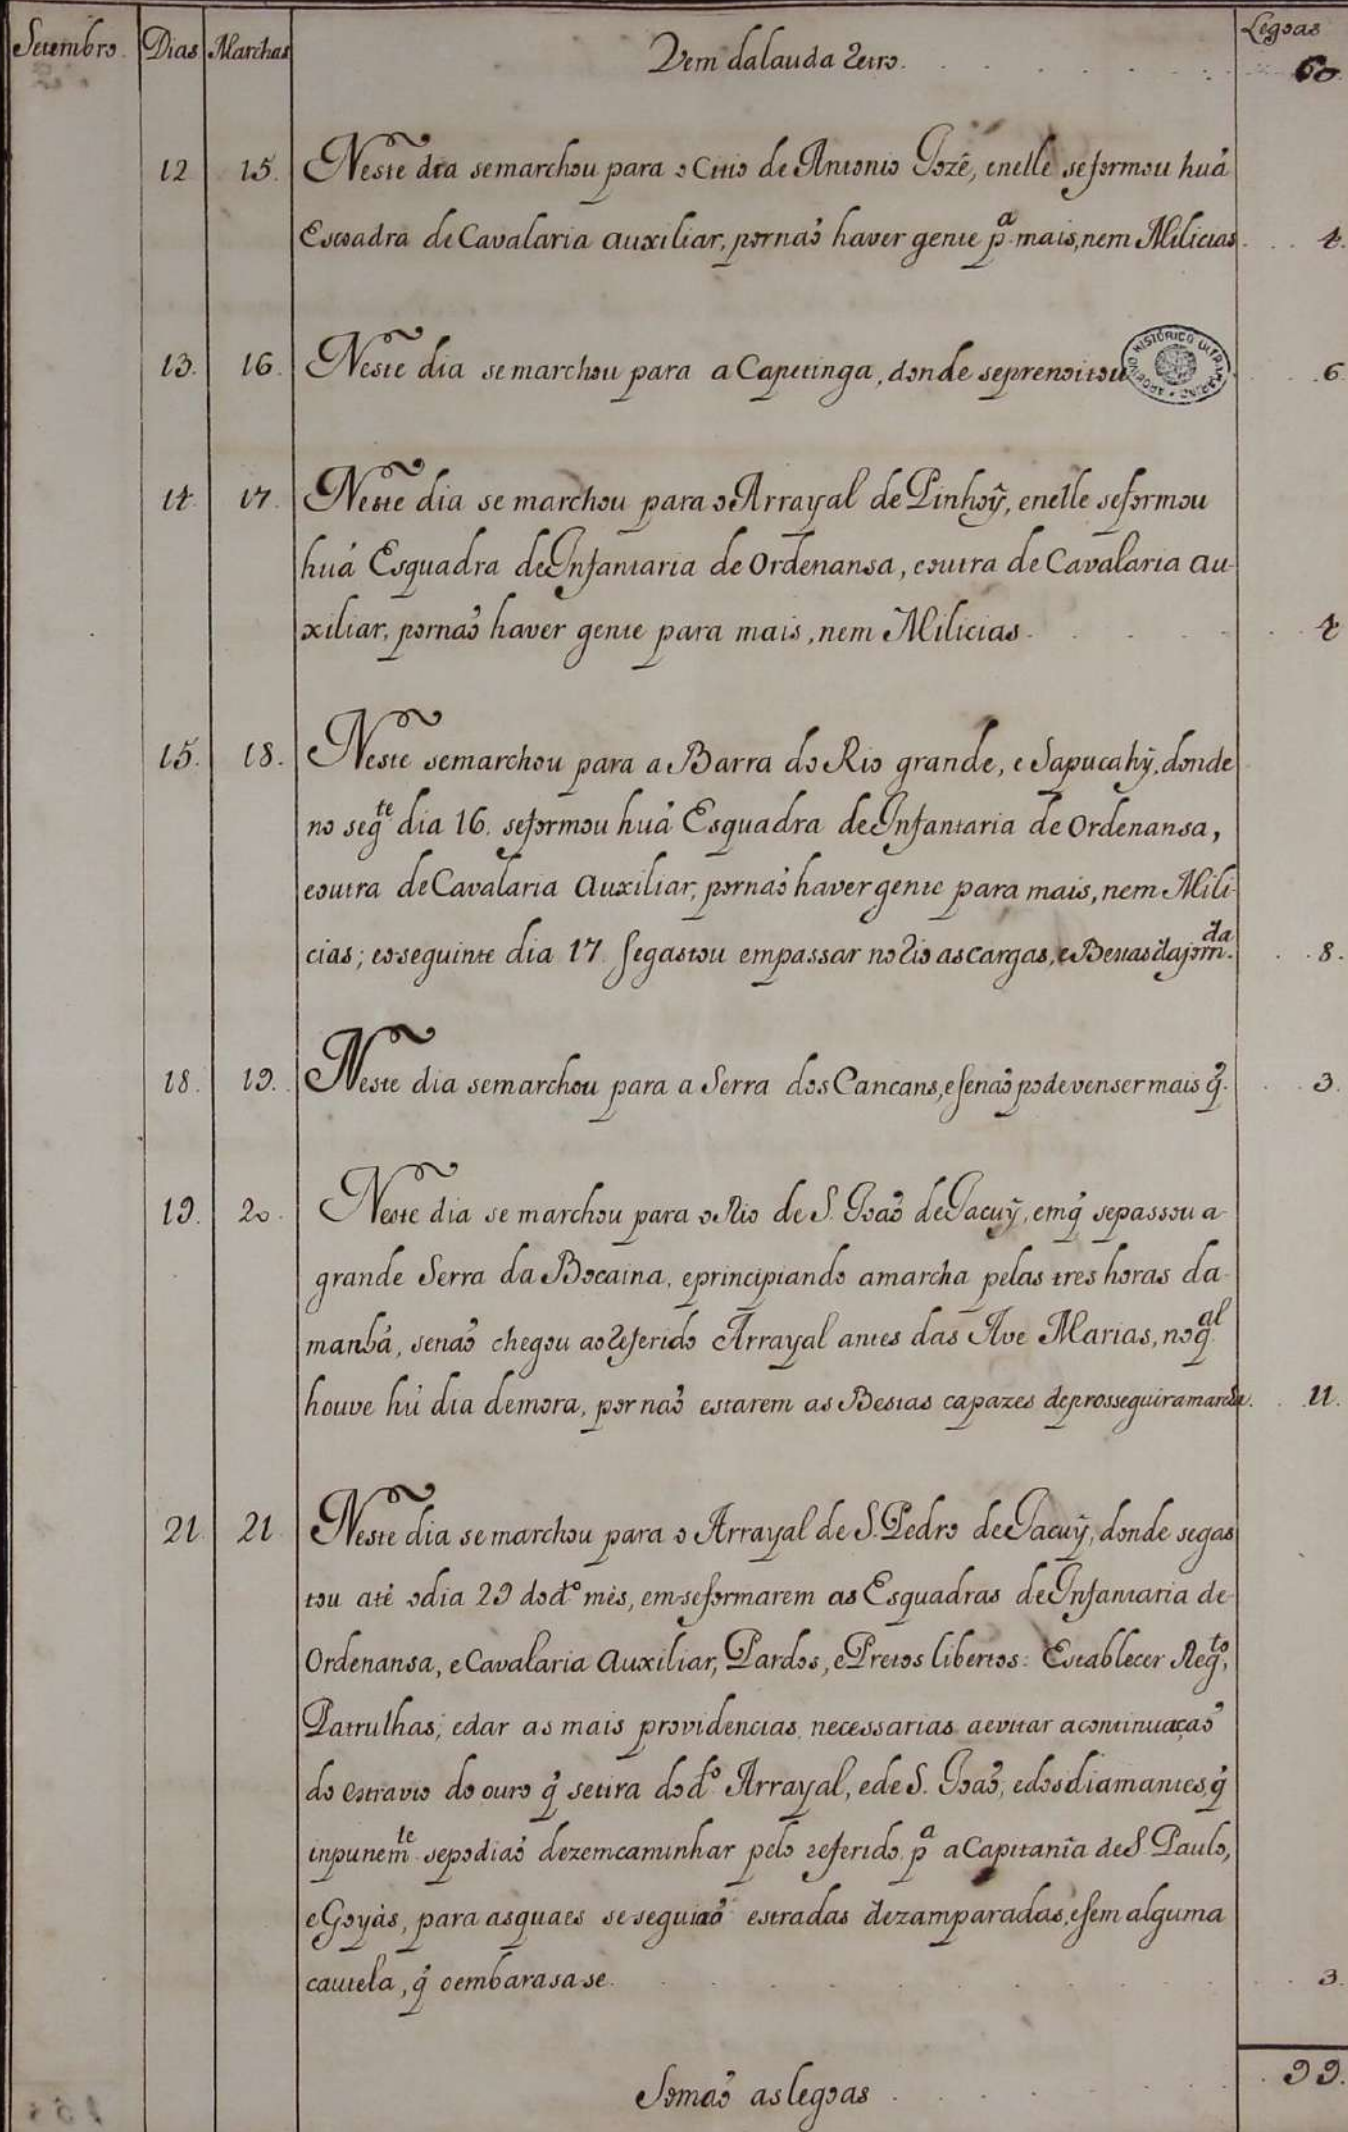 Setembro. Dias Marchas Vem da lauda retro. Legoas
60
12 15. Neste dia se marchou para o Citio de Antonio Jozê, e nelle se formou huã
Escoadra de Cavalaria auxiliar, por naõ haver gente p.ª mais, nem Milicias. 4.
13. 16. Neste dia se marchou para a Capetinga, donde se prenoitou 6
ARQUIVO HISTÓRICO ULTRAMARINO
14. 17. Neste dia se marchou para o Arrayal de Pinhoỹ, e nelle se formou
huã Esquadra de Infantaria de Ordenansa, e outra de Cavalaria au-
xiliar, por naõ haver gente para mais, nem Milicias. 4
15. 18. Neste se marchou para a Barra do Rio grande, e Sapucahỹ, donde
no seg.te dia 16. se formou huã Esquadra de Infantaria de Ordenansa,
e outra de Cavalaria Auxiliar, por naõ haver gente para mais, nem Mili-
cias; e o seguinte dia 17. se gastou em passar no rio as cargas, e Bestas da jorn.da 8.
18. 19. Neste dia se marchou para a Serra dos Cancans, e se naõ pode venser mais q̃. 3.
19. 20. Neste dia se marchou para o Rio de S. Joaõ de Jacuỹ, em q̃ se passou a
grande Serra da Bocaina, e principiando a marcha pelas tres horas da
manhã, se naõ chegou ao referido Arrayal antes das Ave Marias, no q.al
houve hũ dia demora, por naõ estarem as Bestas capazes de prosseguir a marcha. 11.
21 21 Neste dia se marchou para o Arrayal de S. Pedro de Jacuỹ, donde se gas
tou até o dia 29 do d.º mês, em se formarem as Esquadras de Infantaria de
Ordenansa, e Cavalaria Auxiliar, Pardos, e Pretos libertos: Establecer Reg.tos,
Patrulhas; e dar as mais providencias necessarias a evitar a continuaçaõ
do estravio do ouro q̃ se tira do d.º Arrayal, e de S. Joaõ, e dos diamantes, q̃
inpunem.te se podiaõ dezemcaminhar pelo referido p.ª a Capitanîa de S. Paulo,
e Goyàs, para as quaes se seguiaõ estradas dezamparadas, e sem alguma
cautela, q̃ o embarasase. 3.
Somaõ as legoas 99.